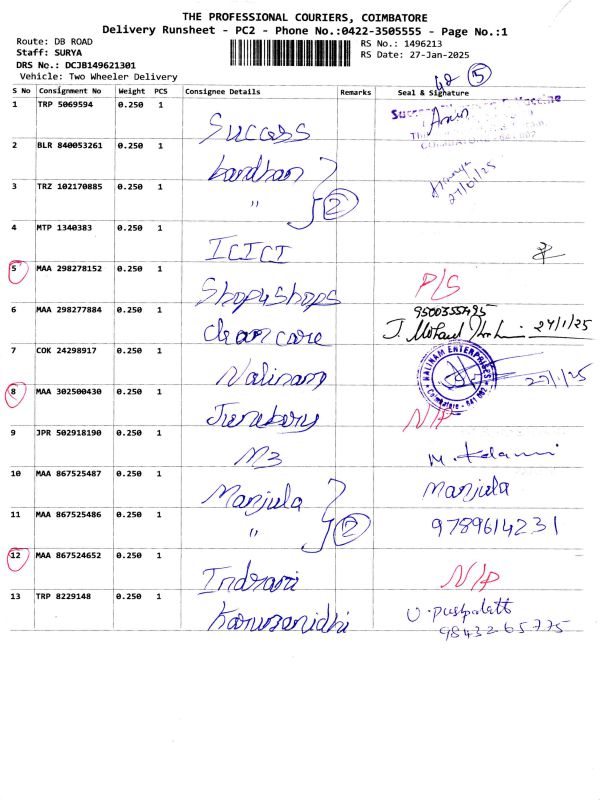 THE PROFESSIONAL COURIERS, COIMBATORE
Delivery Runsheet - PC2 - Phone No.:0422-3505555 - Page No.:1
Route: DB ROAD
RS No.: 1496213
Staff: SURYA
RS Date: 27-Jan-2025
DRS No.: DCJB149621301
Vehicle: Two Wheeler Delivery
5
S No Consignment No Weight PCS Consignee Details Remarks Seal & Signature
1 TRP 5069594 0.250 1 Success
2 BLR 840053261 0.250 1
3 TRZ 102170885 0.250 1 " 2 27/01/25
4 MTP 1340383 0.250 1 ICICI
5 MAA 298278152 0.250 1 Shop4Shops P/S
6 MAA 298277884 0.250 1 Clean care 9500355495
27/1/25
7 COK 24298917 0.250 1 Nalinam NALINAM ENTERPRISES Coimbatore - 641 002 27/1/25
8 MAA 302500430 0.250 1 N/P
9 JPR 502918190 0.250 1 M3
10 MAA 867525487 0.250 1 Manjula Manjula
11 MAA 867525486 0.250 1 " 2 9789614231
12 MAA 867524652 0.250 1 Indrani N/P
13 TRP 8229148 0.250 1
9843265775